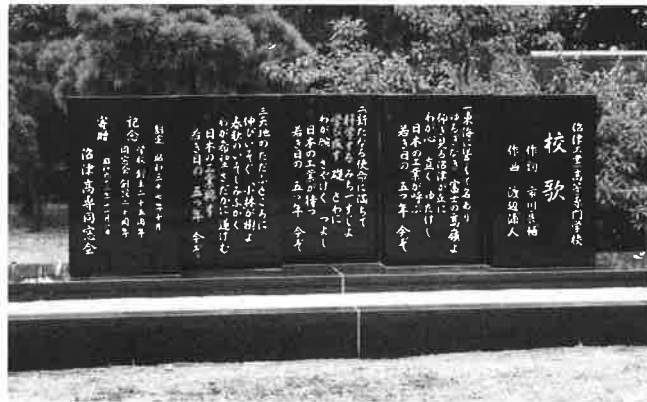 沼津工業高等専門学校
校歌
作詞 市川良輔
作曲 渡辺浦人
一、東海に望みて名あり
ゆるぎなき 富士の高嶺よ
仰ぎ見る沼津が丘に
わが心 直く ゆたけし
日本の工業が呼ぶ
若き日の 五つ年 今ぞ
二、新たなる使命に満ちて
みちつねによ
とわに
わが腕 さやけく つよし
日本の工業が待つ
若き日の 五つ年 今ぞ
三、天地のただいぶところに
伸びいそぐ 小林が樹よ
日本の工業
若き日の 五つ年 今ぞ
創立 昭和三十七年十月
記念 学校創立二十五周年
同窓会創立二十周年
寄贈
沼津高専同窓会